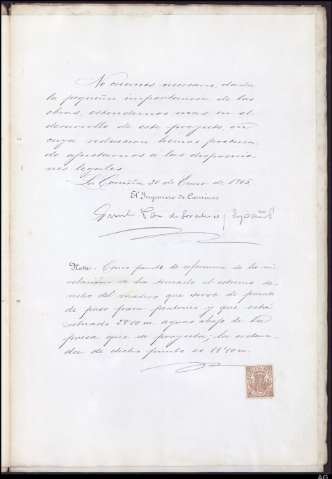 No creemos necesario, dada
la pequeña importancia de las
obras, extendernos mas en el
desarrollo de este proyecto en
cuya redaccion hemos procura
do ajustarnos a las disposicio
nes legales.
La Coruña 30 de Enero de 1905
El Ingeniero de Caminos
Nota: Como punto de referencia de la ni
velacion se ha tomado el extremo de
recho del madero que sirve de
de paso para peatones y que esta
situado aguas abajo de la
presa que se proyecta; la ordena
da de dicho punto es